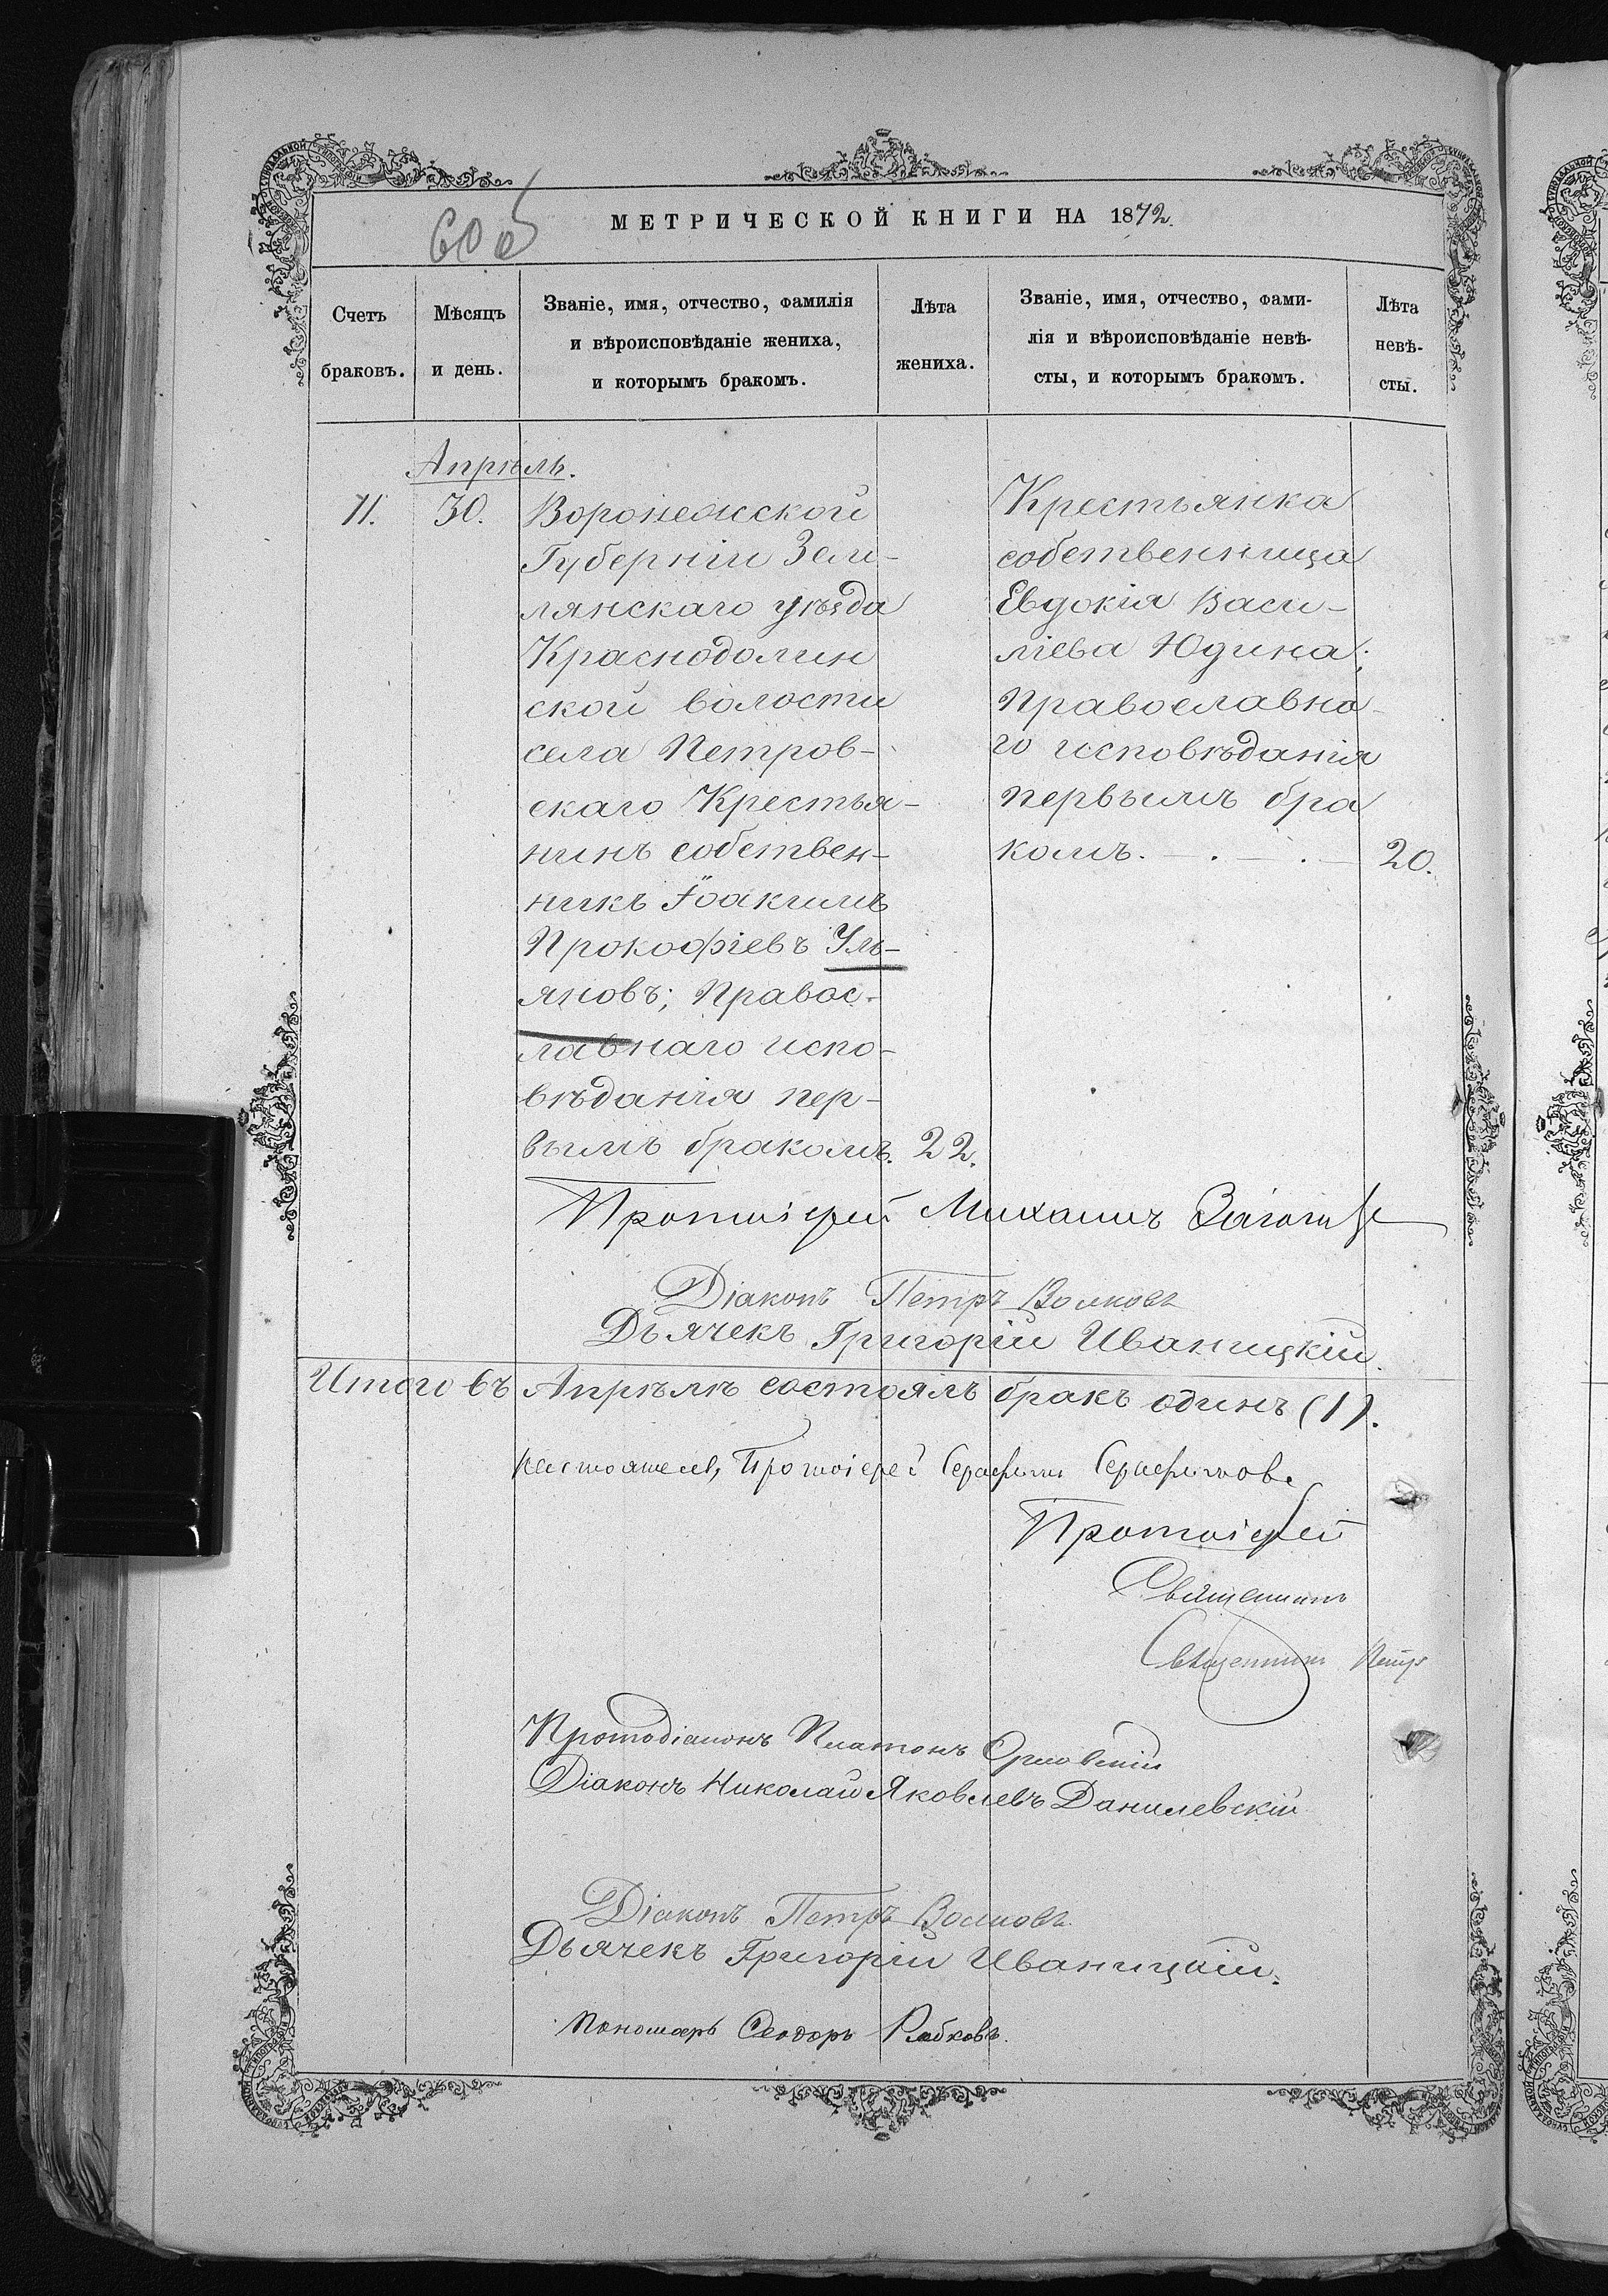 60 об
МЕТРИЧЕСКОЙ КНИГИ НА 1872.
Счетъ
браковъ.
Мѣсяцъ
и день.
Званіе, имя, отчество, фамилія
и вѣроисповѣданіе жениха,
и которымъ бракомъ.
Лѣта
жениха.
Званіе, имя, отчество, фами-
лія и вѣроисповѣданіе невѣ-
сты, и которымъ бракомъ.
Лѣта
невѣ-
сты.
Апрѣль.
11.
30.
Воронежской
Губерніи Зем-
лянскаго уѣзда
Краснодолин
ской волости
села Петров-
скаго Крестья-
нинъ собствен-
никъ Іоакимъ
Прокофіевъ Уль-
яновъ; Правос-
лавнаго испо-
вѣданія пер-
вымъ бракомъ.
22.
Крестьянка
собственница
Евдокія Васи-
ліева Юдина;
Православна-
го исповѣданія
первымъ бра
комъ. — . — . —
20.
Протоіерей Михаилъ
Діаконъ Петръ Волковъ
Дьячекъ Григорій Иваницкій.
Итого въ Апрѣлѣ состоялъ бракъ одинъ (1).
Настоятель, Протоіерей Серафимъ Серафимовъ
Протоіерей
Священникъ
Священникъ Петръ
Протодіаконъ Платонъ Орловскій
Діаконъ Николай Яковлевъ Данилевскій
Діаконъ Петръ Волковъ.
Дьячекъ Григорій Иваницкій.
Пономарь Ѳеодоръ Рябковъ.